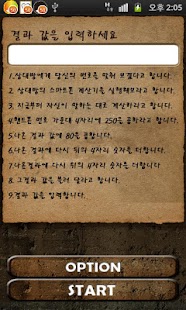 오후 2:05
결과 값을 입력하세요
1.상대방에게 당신의 번호를 맞혀 보겠다고 합니다.
2.상대방의 스마트폰 계산기를 실행해보라고 합니다.
3.지금부터 자신이 말하는 대로 계산하라고 합니다.
4.핸드폰 번호 가운데 4자리에 250을 곱하라고 합니다.
5.나온 결과 값에 80을 곱합니다.
6.나온결과에 다시 뒤의 4자리 숫자를 더합니다.
7.나온결과에 다시 뒤의 4자리 숫자를 더합니다.
8.그결과 값을 불러 달라고 합니다.
9.결과 값을 입력합니다.
OPTION
START